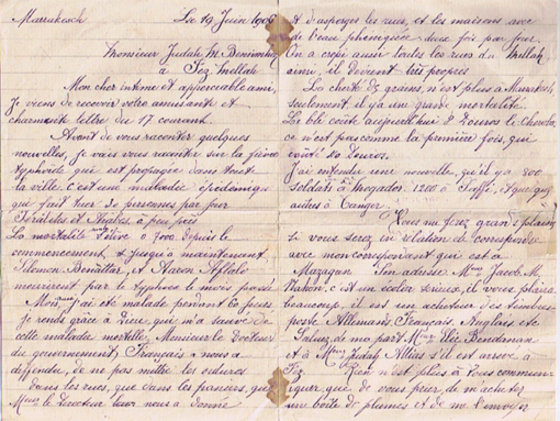 Marrakesch Le 19 Juin 1906
Monsieur Judah M. Bensimhon
à Fez, Mellah
Mon cher intime et appréciable ami,
Je viens de recevoir votre amusante et
charmante lettre du 17 courant.
Avant de vous raconter quelques
nouvelles, je vais vous raconter sur la fièvre
typhoïde qui est propagée dans toute
la ville. C'est une maladie épidémique
qui fait tuer 20 personnes par jour
Israélites et Arabes à peu près
La mortalité s'élève à 7000 depuis le
commencement, et jusqu'à maintenant
Salomon Benattar, et Aaron Afflalo
moururent par le typhoïde le mois passé
Moi aussi j'ai été malade pendant 60 jours
je rends grâce à Dieu, qui m'a sauvé de
cette maladie mortelle, Monsieur le Docteur
du gouvernement, Français a nous a
deffendu, de ne pas mettre les ordures
dans les rues, que dans les paniers, que
le Docteur leur nous a donné
et d'asperger les rues, et les maisons avec
de l'eau phéniquée deux fois par jour.
On a crépi aussi toutes les rues du Mellah,
ainsi, il devient très propres
La cherté des grains, n'est plus à Marrakesch,
seulement, il y a une grande mortalité.
Le blé coûte aujourd'hui 8 Douros le
ce n'est pas comme la première fois, qui
coûté 40 Douros.
J'ai entendu une nouvelle, qu'il y a 800
soldats à Mogador, 1200 à Saffi, et quelques
autres à Tanger.
Vous me ferez grand plaisir,
si vous serez en relation de correspondre
avec mon correspondant qui est à
Mazagan Son adresse Jacob M.
c'est un écolier sérieux, il vous plaira
beaucoup, il est un acheteur des timbres
poste Allemands, Français, Anglais etc
Saluez de ma part Elie Bendanan
et à Judah s'il est arrivé à
Fez. Rien n'est plus à vous commun-
iquer que de vous prier de m'acheter
une boîte de plumes et de me l'envoyer